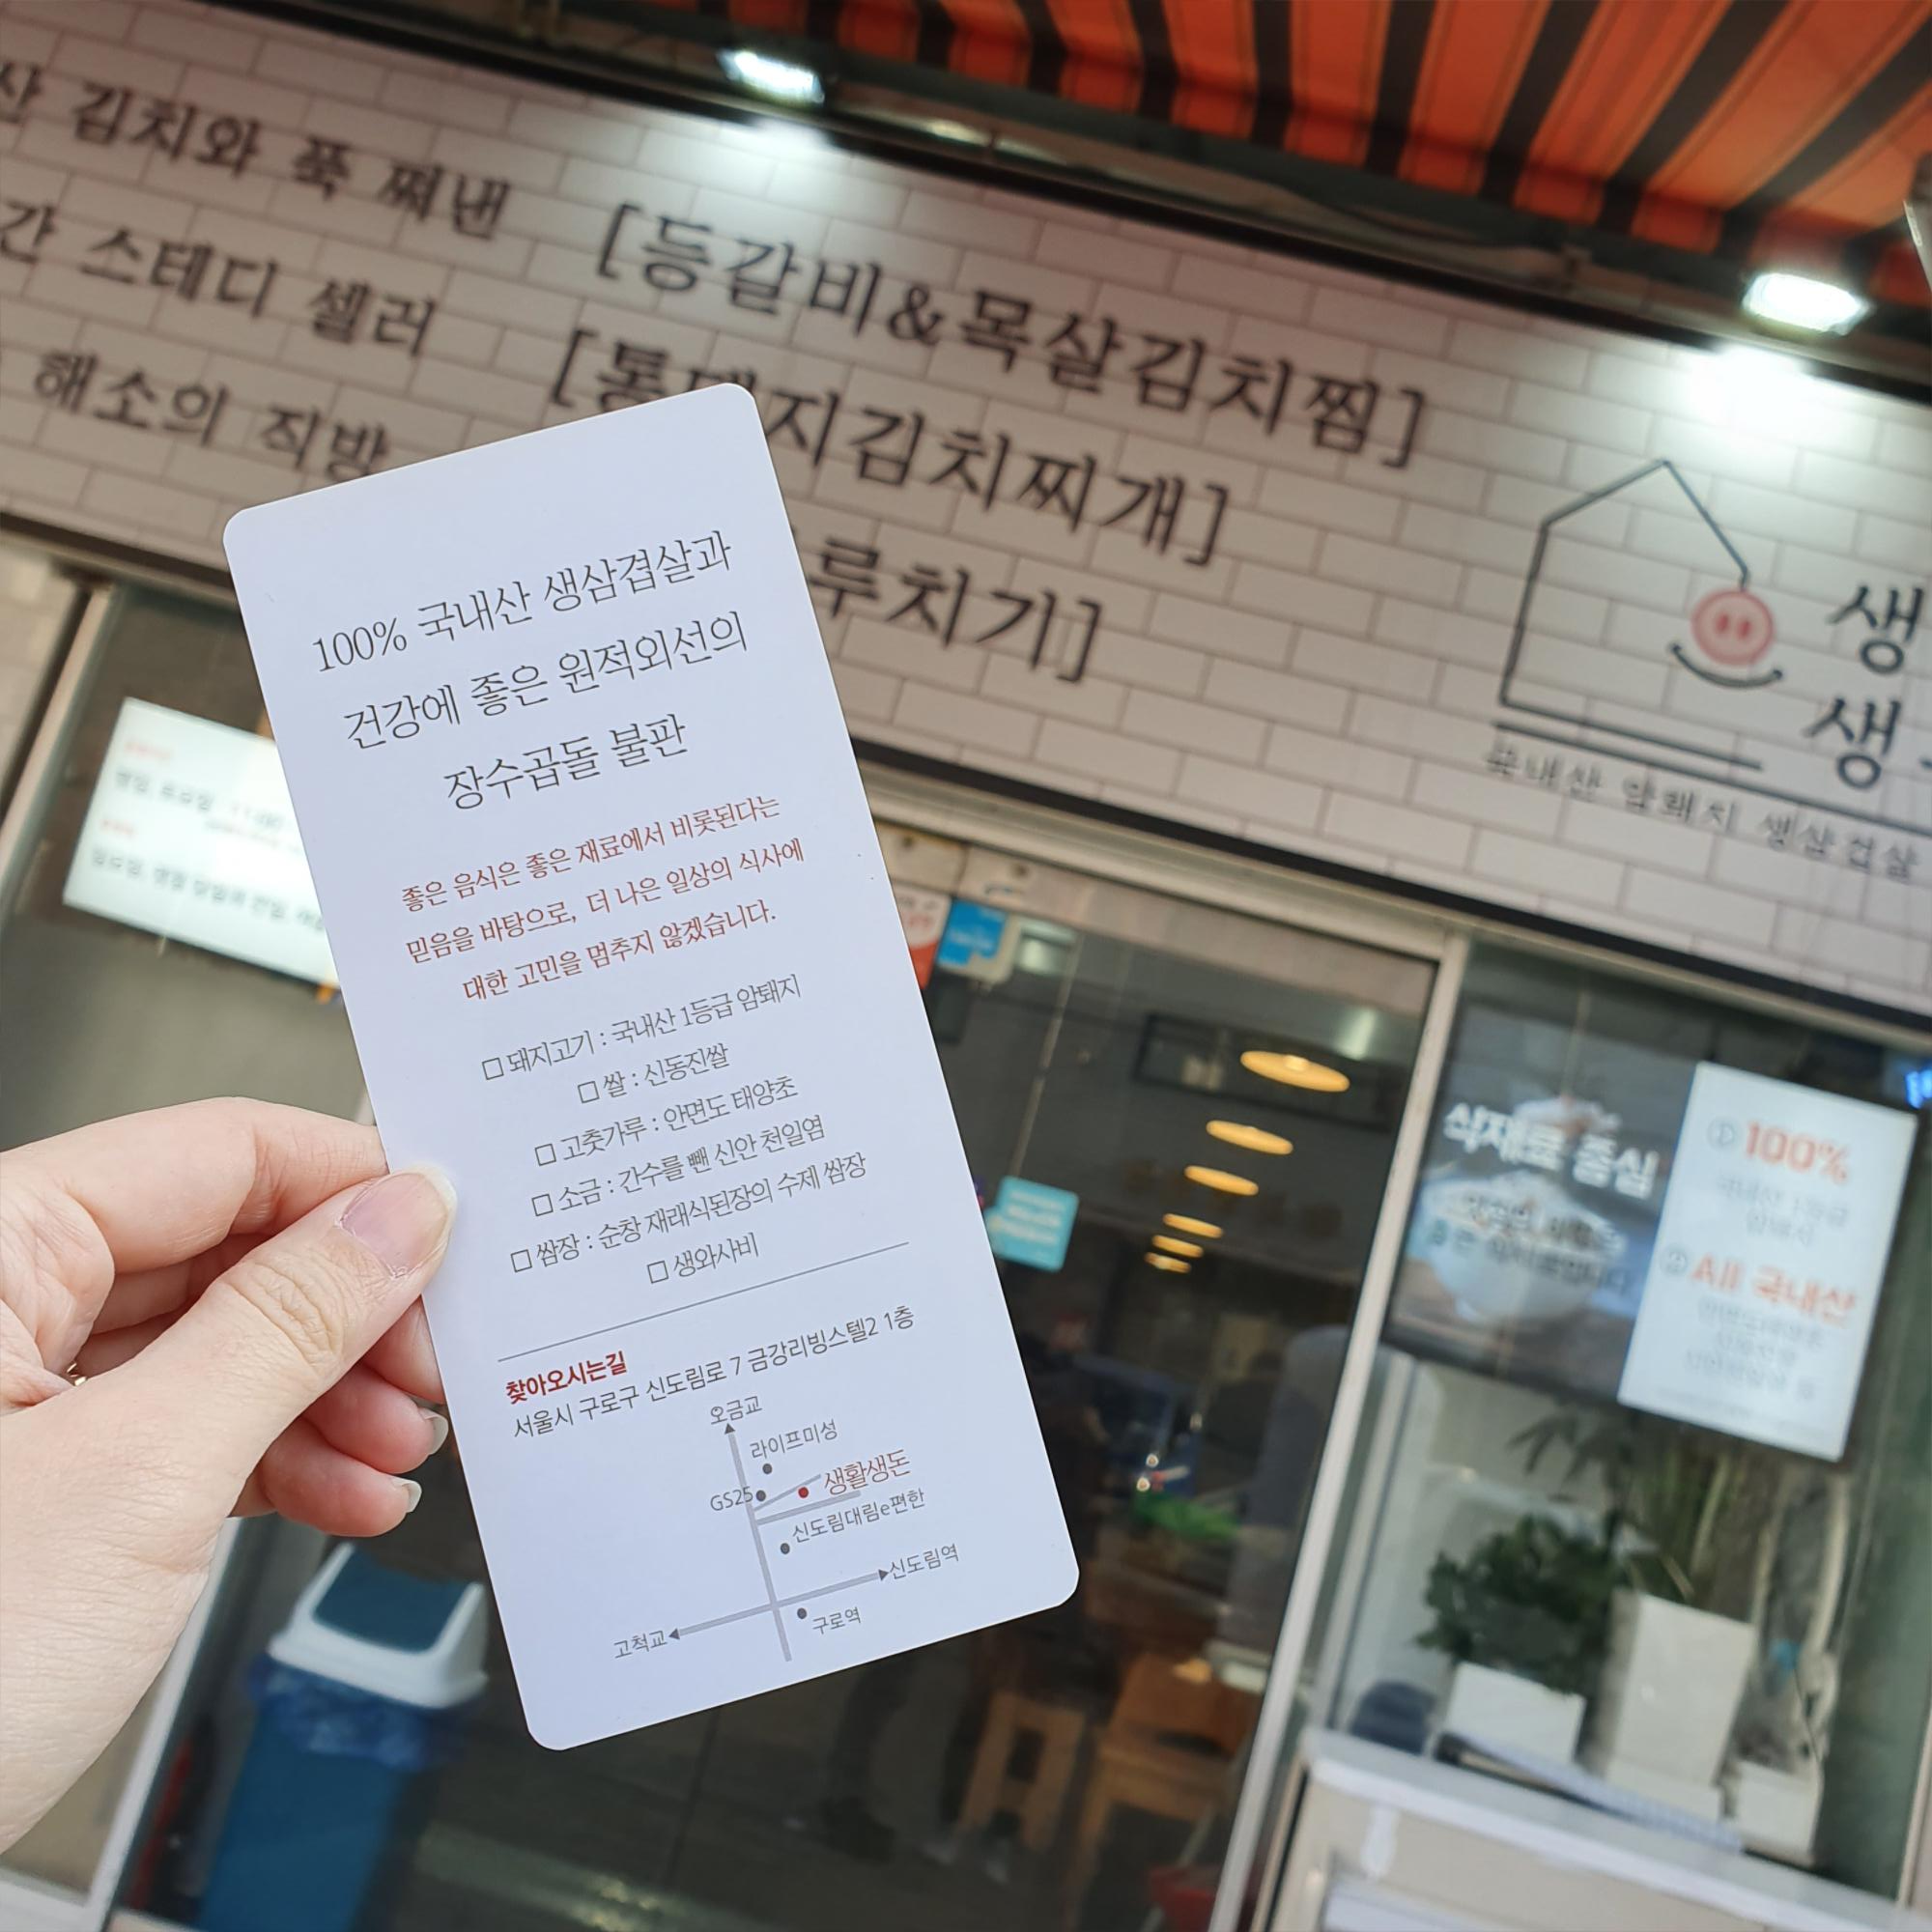 산 김치와 푹 쪄낸 [등갈비&목살김치찜]
간 스테디 셀러 [통돼지김치찌개]
해소의 직방 루치기]
생
생
국내산 암퇘지 생삼겹살
100% 국내산 생삼겹살과
건강에 좋은 원적외선의
장수곱돌 불판
좋은 음식은 좋은 재료에서 비롯된다는
믿음을 바탕으로, 더 나은 일상의 식사에
대한 고민을 멈추지 않겠습니다.
□ 돼지고기 : 국내산 1등급 암퇘지
□ 쌀 : 신동진쌀
□ 고춧가루 : 안면도 태양초
□ 소금 : 간수를 뺀 신안 천일염
□ 쌈장 : 순창 재래식된장의 수제 쌈장
□ 생와사비
찾아오시는길
서울시 구로구 신도림로 7 금강리빙스텔2 1층
오금교
라이프미성
생활생돈
GS25
신도림대림e편한
신도림역
구로역
고척교
식재료 중심
① 100%
국내산 1등급
암퇘지
② All 국내산